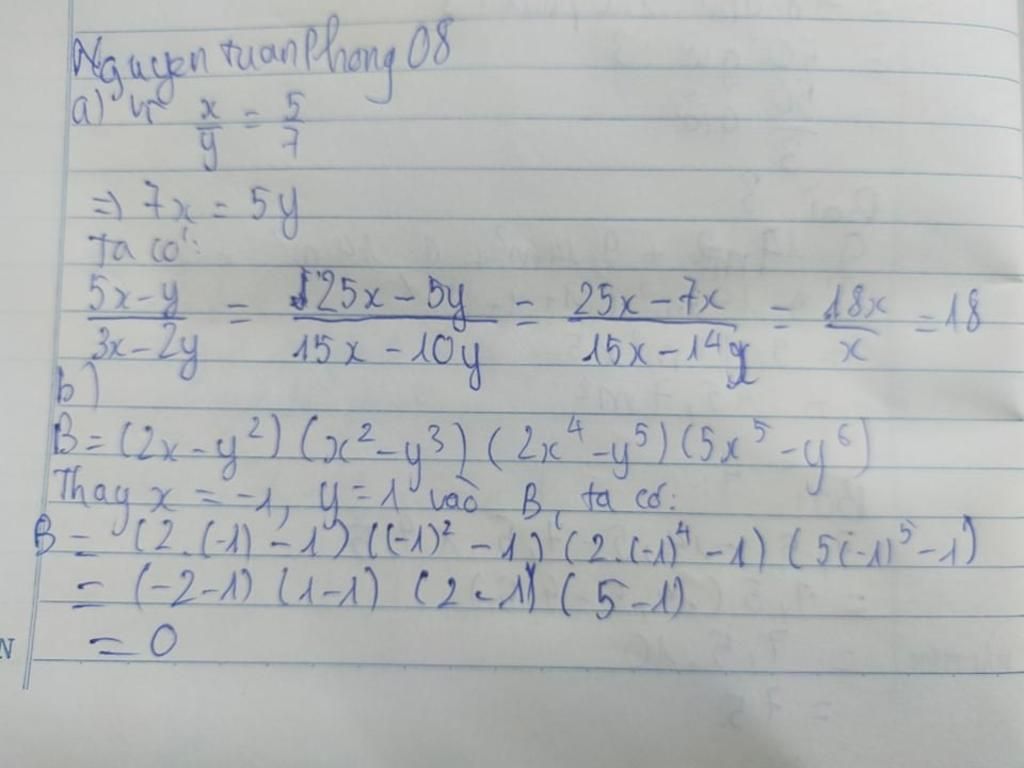 Nguyen tuan Phong 08
a) vì x/y = 5/7
=> 7x = 5y
ta có:
5x-y/3x-2y = 25x-5y/15x-10y = 25x-7x/15x-14x = 18x/x = 18
b)
B = (2x-y²) (x²-y³) (2x⁴-y⁵) (5x⁵-y⁶)
Thay x = -1, y = 1 vào B, ta có:
B = (2.(-1)-1) ((-1)²-1) (2.(-1)⁴-1) (5(-1)⁵-1)
= (-2-1) (1-1) (2-1) (5-1)
= 0
N